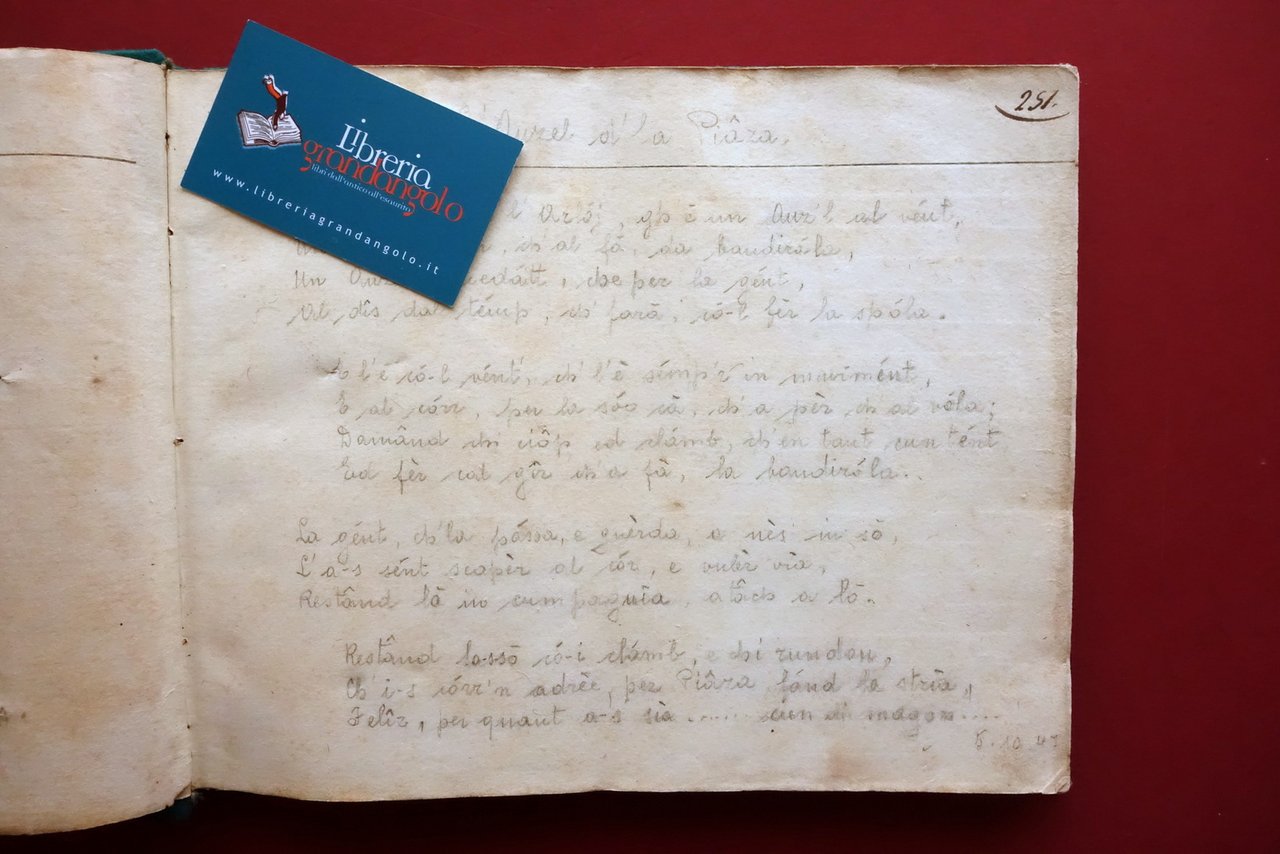 251.
Libreria
grandangolo
libri dall'antico all'esaurito
www.libreriagrandangolo.it
d' la Piâza.
gh è un al vént,
al fâ, da bandiróla,
Un che per la gént,
Al dîs dal témp, ch' farà, có-l fèr la spóla.
E l'é có-l vént, ch' l'è sémp'r in muvimént,
E al córr, per la sóo cà, ch' a pèr ch' al vóla;
Damånd chi ciôp ed clámb, ch'en tant cuntént
Ed fèr cal gîr ch' a fà, la bandiróla.
La gént, ch'la pássa, e guèrda, a nès in sō,
L' a-s sént scapèr al cór, e vulèr vìa,
Restând là in cumpagnìa, a lō.
Restând lassō có-i clámb, e chi rundon,
Ch' i-s córr'n adrèe, per Piâza, fánd la strìa,
Felîz, per quant a-s sìa ...... cun al magon....
5.10.47